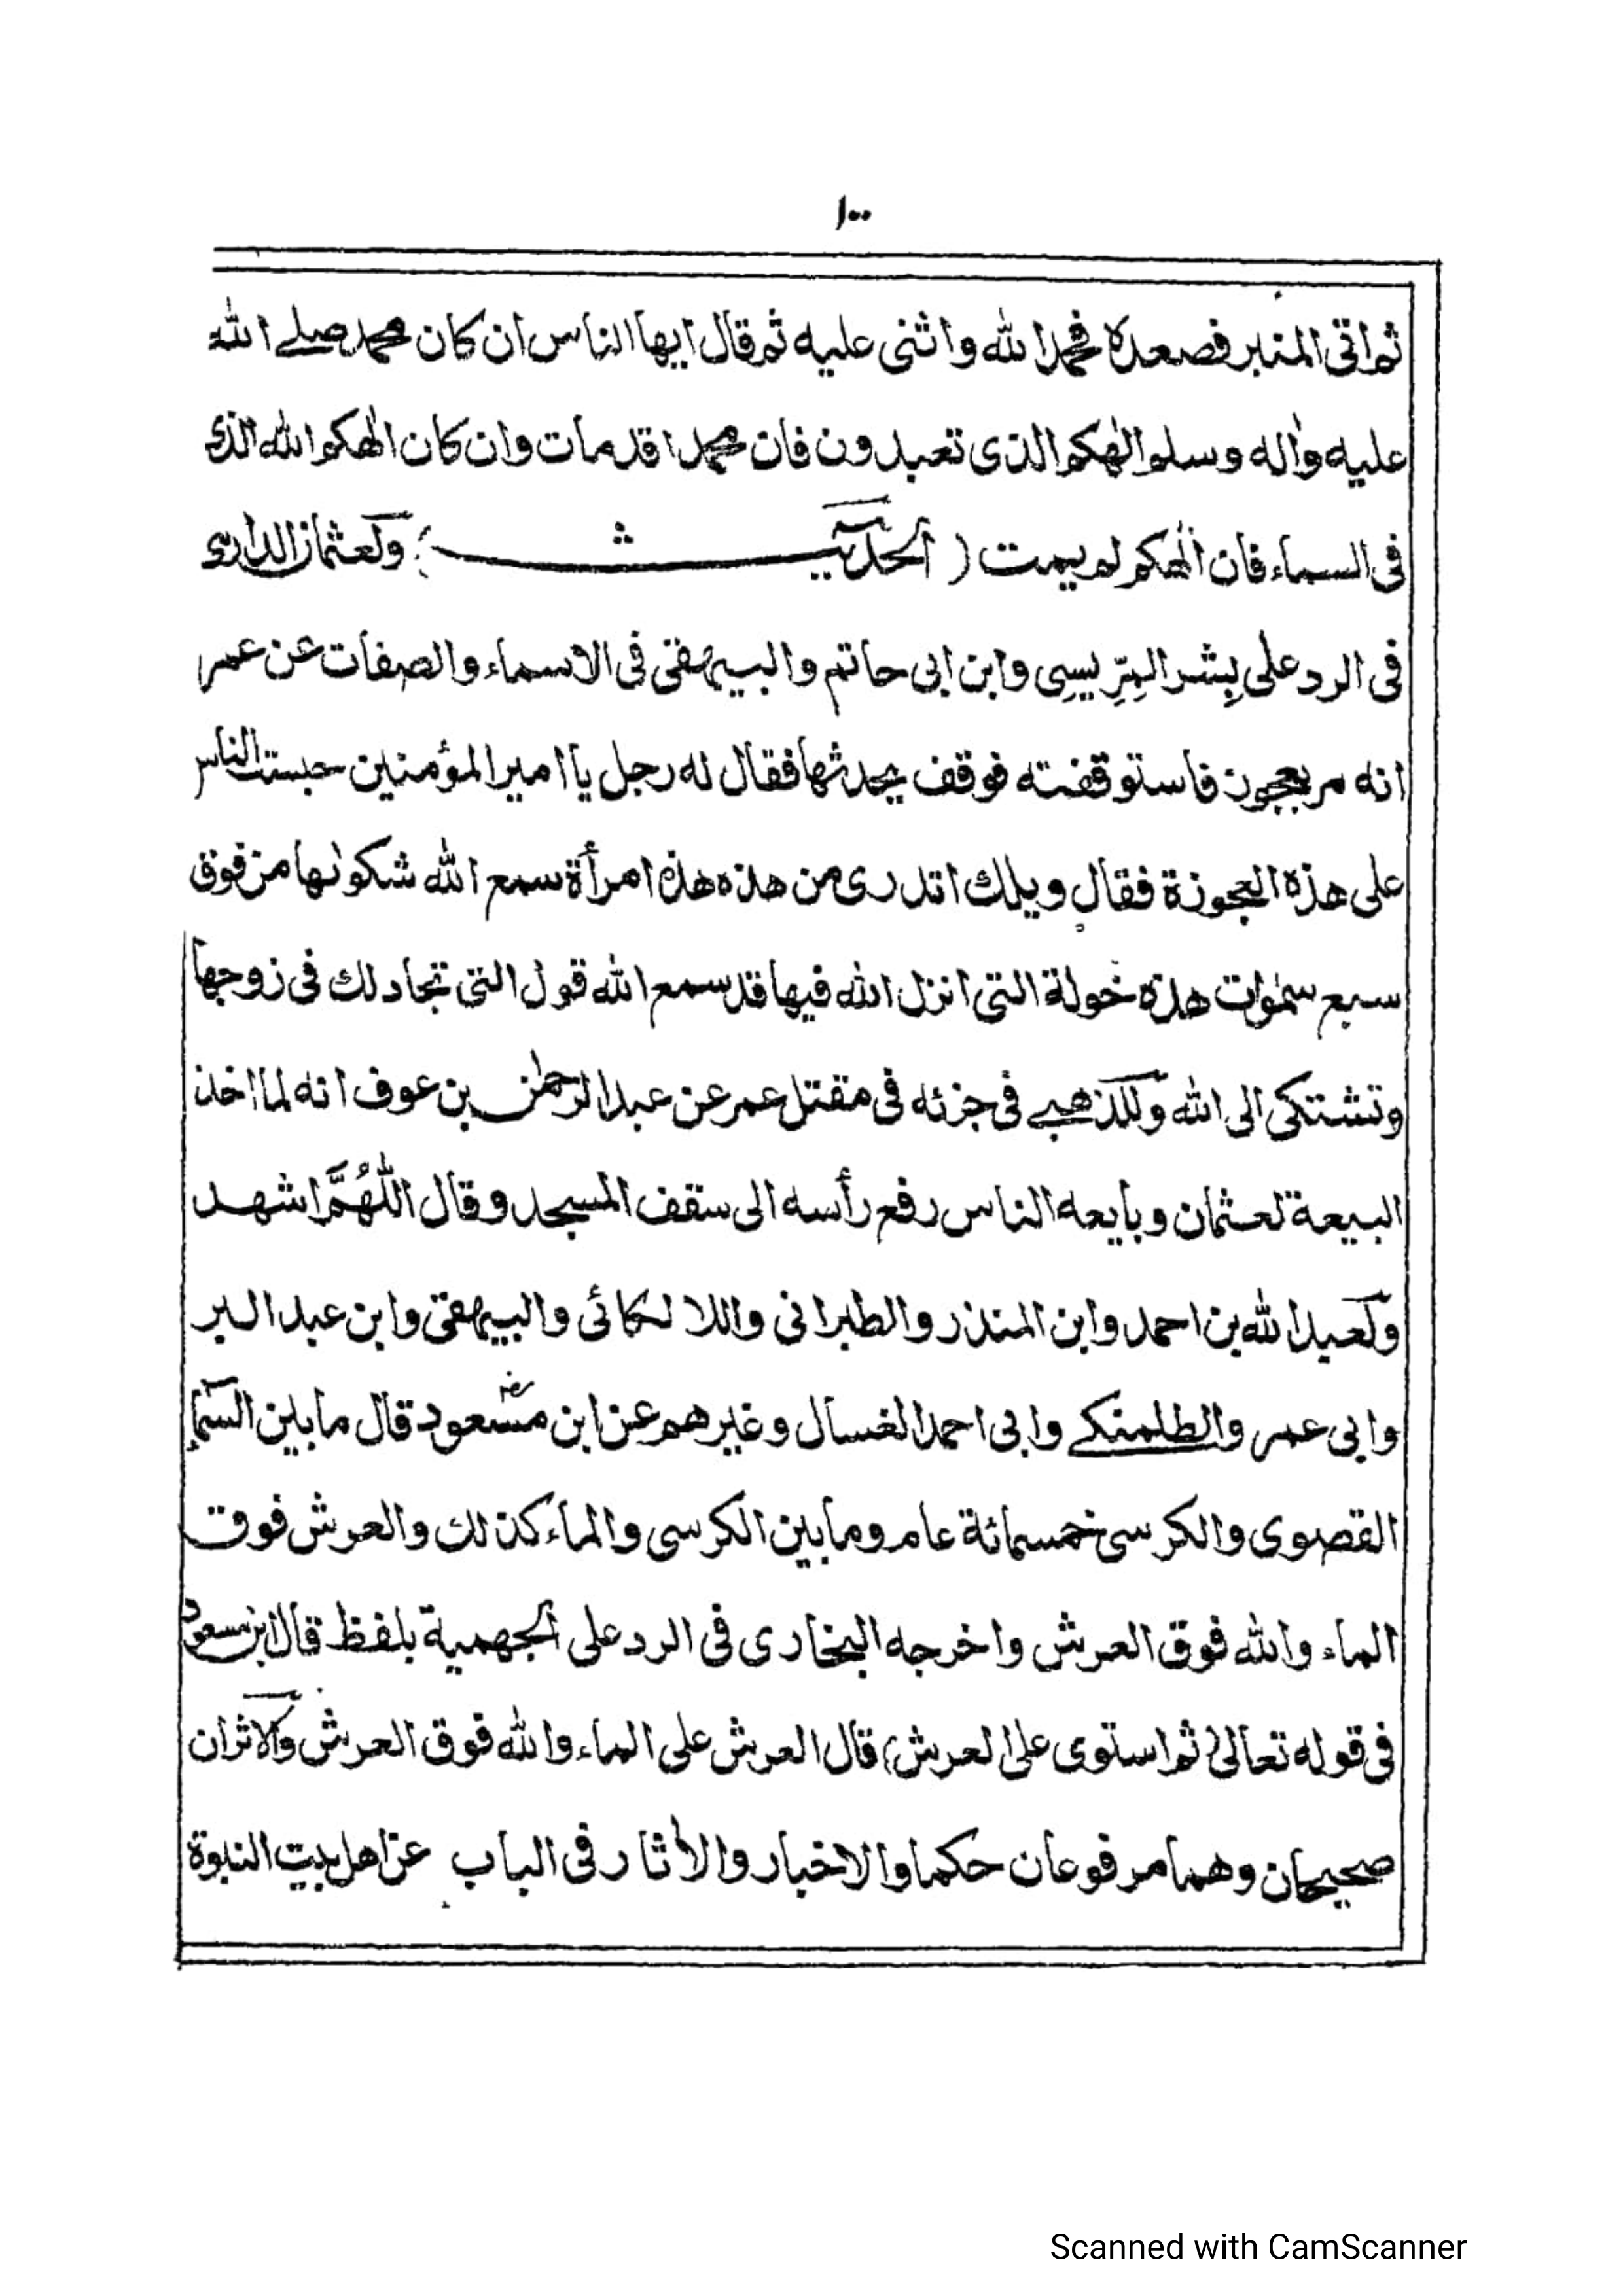 ١٠٠
ثم اتى المنبر فصعده فحمد الله واثنى عليه ثم قال ايها الناس ان كان محمد صلے الله
عليه واٰله وسلم الٰهكم الذى تعبدون فان محمدا قد مات وان كان الٰهكم الله الذى
فى السماء فان الٰهكم لم يمت ( الحديث ) ولعثمان الدارمى
فى الرد على بِشر المِرِّيسِى وابن ابى حاتم والبيهقى فى الاسماء والصفات عن عمر
انه مر بعجوز فاستوقفته فوقف يحدثها فقال له رجل يا امير المؤمنين حبست الناس
على هذه العجوزة فقال ويلك اتدرى من هذه هذه امرأة سمع الله شكوٰىها من فوق
سبع سمٰوات هذه خولة التى انزل الله فيها قد سمع الله قول التى تجادلك فى زوجها
وتشتكى الى الله وللذهبے فى جزئه فى مقتل عمر عن عبد الرحمٰن بن عوف انه لما اخذ
البيعة لعثمان وبايعه الناس رفع رأسه الى سقف المسجد وقال اللّٰهُمَّ اشهد
ولعبد الله بن احمد وابن المنذر والطبرانى واللالكائى والبيهقى وابن عبد البر
وابى عمر والطلمنكے وابى احمد الغسال وغيرهم عن ابن مسعود رض قال ما بين السما
القصوى والكرسى خمسمائة عام وما بين الكرسى والماء كذلك والعرش فوق
الماء والله فوق العرش واخرجه البخارى فى الرد على الجهمية بلفظ قال ابن مسعود
فى قوله تعالى ( ثم استوى على العرش ) قال العرش على الماء والله فوق العرش والاثران
صحيحان وهما مرفوعان حكما والاخبار والاٰثار فى الباب عن اهل بيت النبوة
Scanned with CamScanner